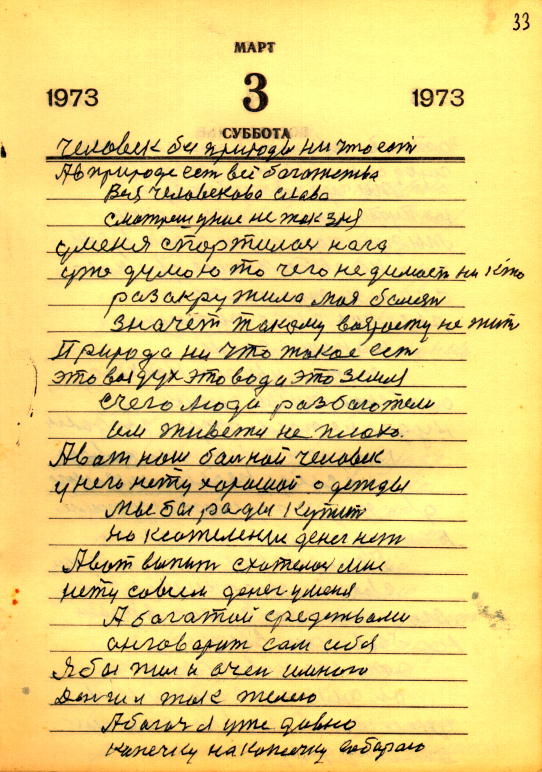 33
МАРТ
1973 3 1973
СУББОТА
Человек без природы ни что ест
А в природе ест всё богатства
Вся человекова слава
смотреш уние не так зня
у меня спортилас нага
уже думою то чего не димает ни кто
разакружила моя балезн
значет такому возросту не жит
Природа ни что такое ест
это воздух это вода это земля
с чего люди разбогатели
им живется не плохо.
А ват наш балной человек
у него нету харошой одежды
Мы бы рады купит
но к сожелению денег нет
А вот выпит схателос мне
нету совсем денег у меня
А багатай средствами
он говорит сам себя
Я бы жил и очен имного
Денги я так желею
А багач я уже давно
капечку на капечку сабераю